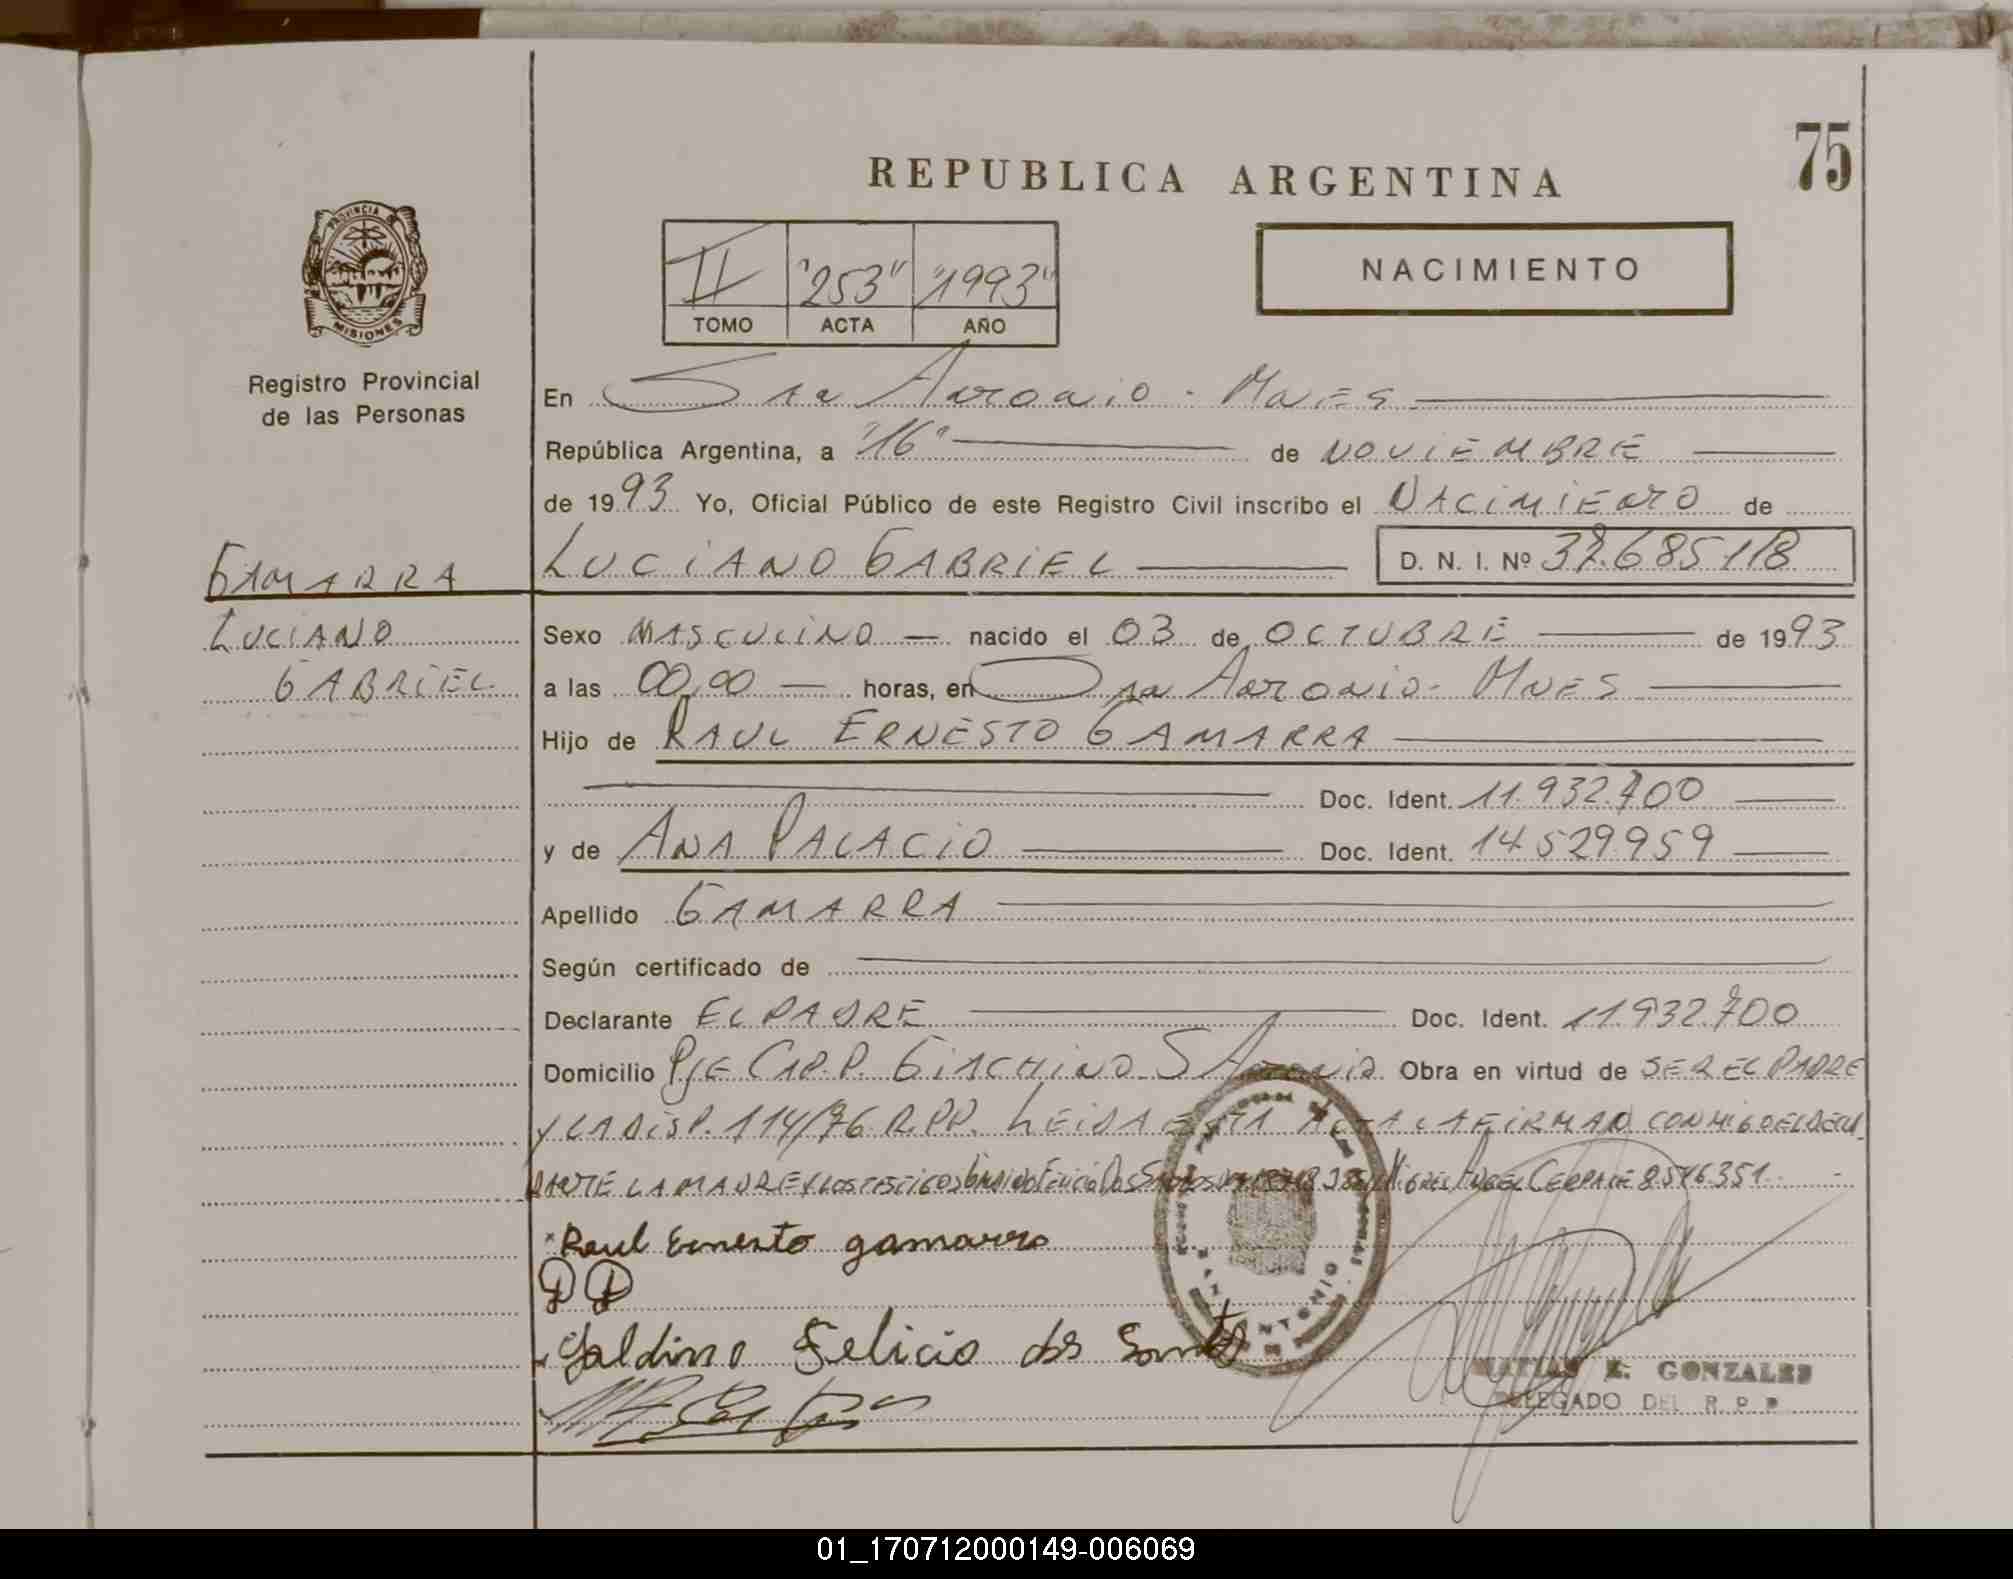 75
REPUBLICA ARGENTINA
PROVINCIA DE
MISIONES
II "253" "1993"
TOMO ACTA AÑO
NACIMIENTO
Registro Provincial
de las Personas
En San Antonio - Mnes
República Argentina, a "16" de NOVIEMBRE
de 1993 Yo, Oficial Público de este Registro Civil inscribo el NACIMIENTO de
GAMARRA LUCIANO GABRIEL D. N. I. Nº
LUCIANO Sexo MASCULINO nacido el 03 de OCTUBRE de 1993
GABRIEL a las 00,00 horas, en San Antonio - Mnes
Hijo de RAUL ERNESTO GAMARRA
Doc. Ident. 11.932.700
y de ANA PALACIO Doc. Ident. 14.529.959
Apellido GAMARRA
Según certificado de
Declarante EL PADRE Doc. Ident. 11.932.700
Domicilio Pje CAP. P. GIACHINO S Antonio Obra en virtud de SER EL PADRE
Y LA DISP. 114/76 R.P.P. LEIDA ESTA ACTA LA FIRMAN CONMIGO EL DECLA
RANTE LA MADRE Y LOS TESTIGOS MIGUEL ANGEL CERPA 8546.351
Raul Ernesto gamarra
Galdino Felicio dos Santos
SAN ANTONIO
E. GONZALES
DELEGADO DEL R. P. P.
01_170712000149-006069